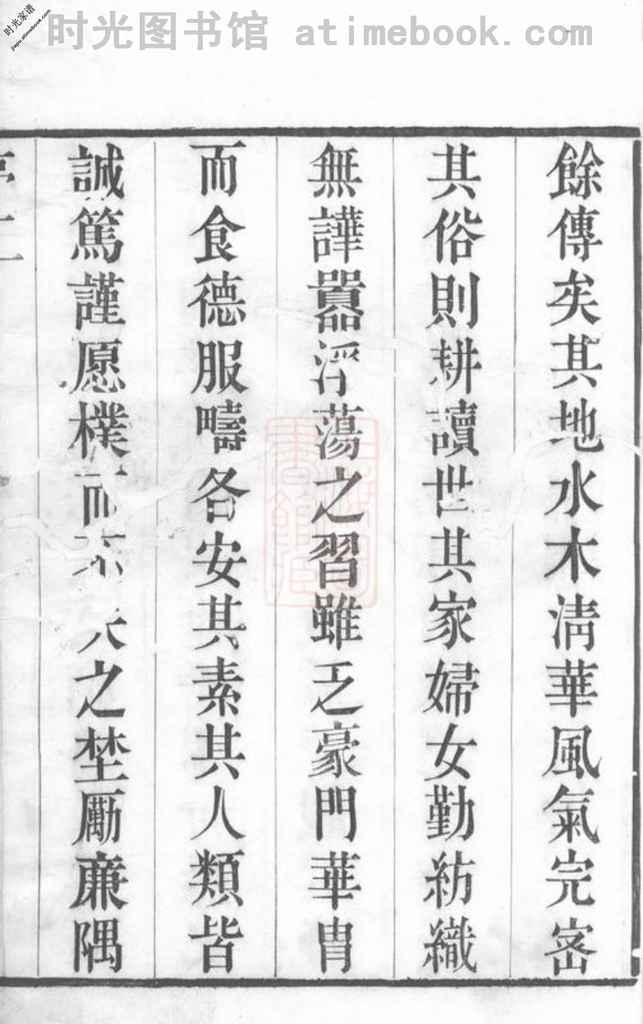 时光图书馆 atimebook.com
时光家谱
餘傳矣其地水木淸華風氣完宻
其俗則耕讀世其家婦女勤紡織
無譁囂浮蕩之習雖乏豪門華冑
而食德服疇各安其素其人類皆
誠篤謹愿樸而不失之埜厲廉隅